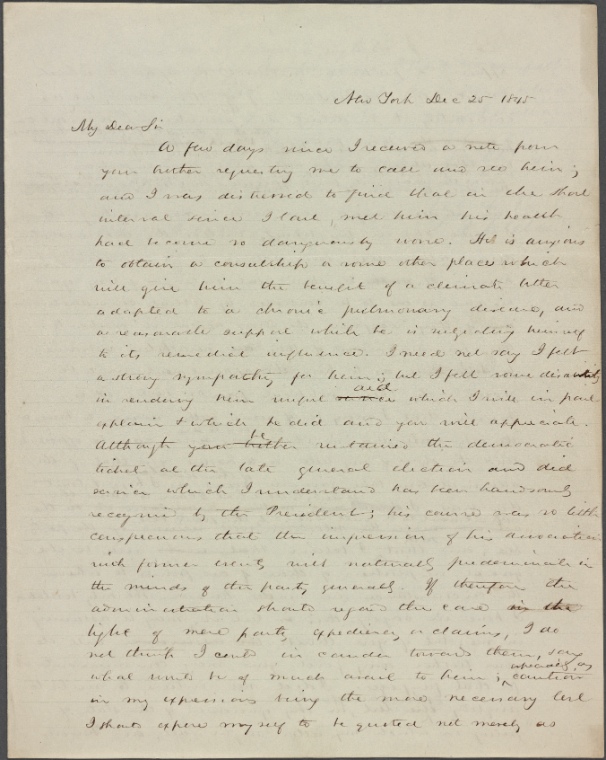 New York Dec 25 1845
My Dear Sir
A few days since I received a note from
your brother requesting me to call and see him;
and I was distressed to find that in the short
interval since I last met him his health
had become so dangerously worse. He is anxious
to obtain a consulship or some other place which
will give him the benefit of a climate better
adapted to a chronic pulmonary disease, and
a reasonable support while he is subjecting himself
to its remedial influence. I need not say I felt
a strong sympathy for him; but I felt some
in rendering him useful aid which I will in part
explain & which he did and you will appreciate.
Although your brother he sustained the democratic
ticket at the late general election and did
service which I understand has been handsomely
recognised by the President; his course was so little
conspicuous that the impression of his association
with former events will naturally predominate in
the minds of the party generally. If therefore the
administration should regard the case in the
light of mere party expediency or claims, I do
not think I could in candor toward them, say
what would be of much avail to him; especially as caution
in my expressions being the more necessary lest
I should expose myself to be quoted not merely as